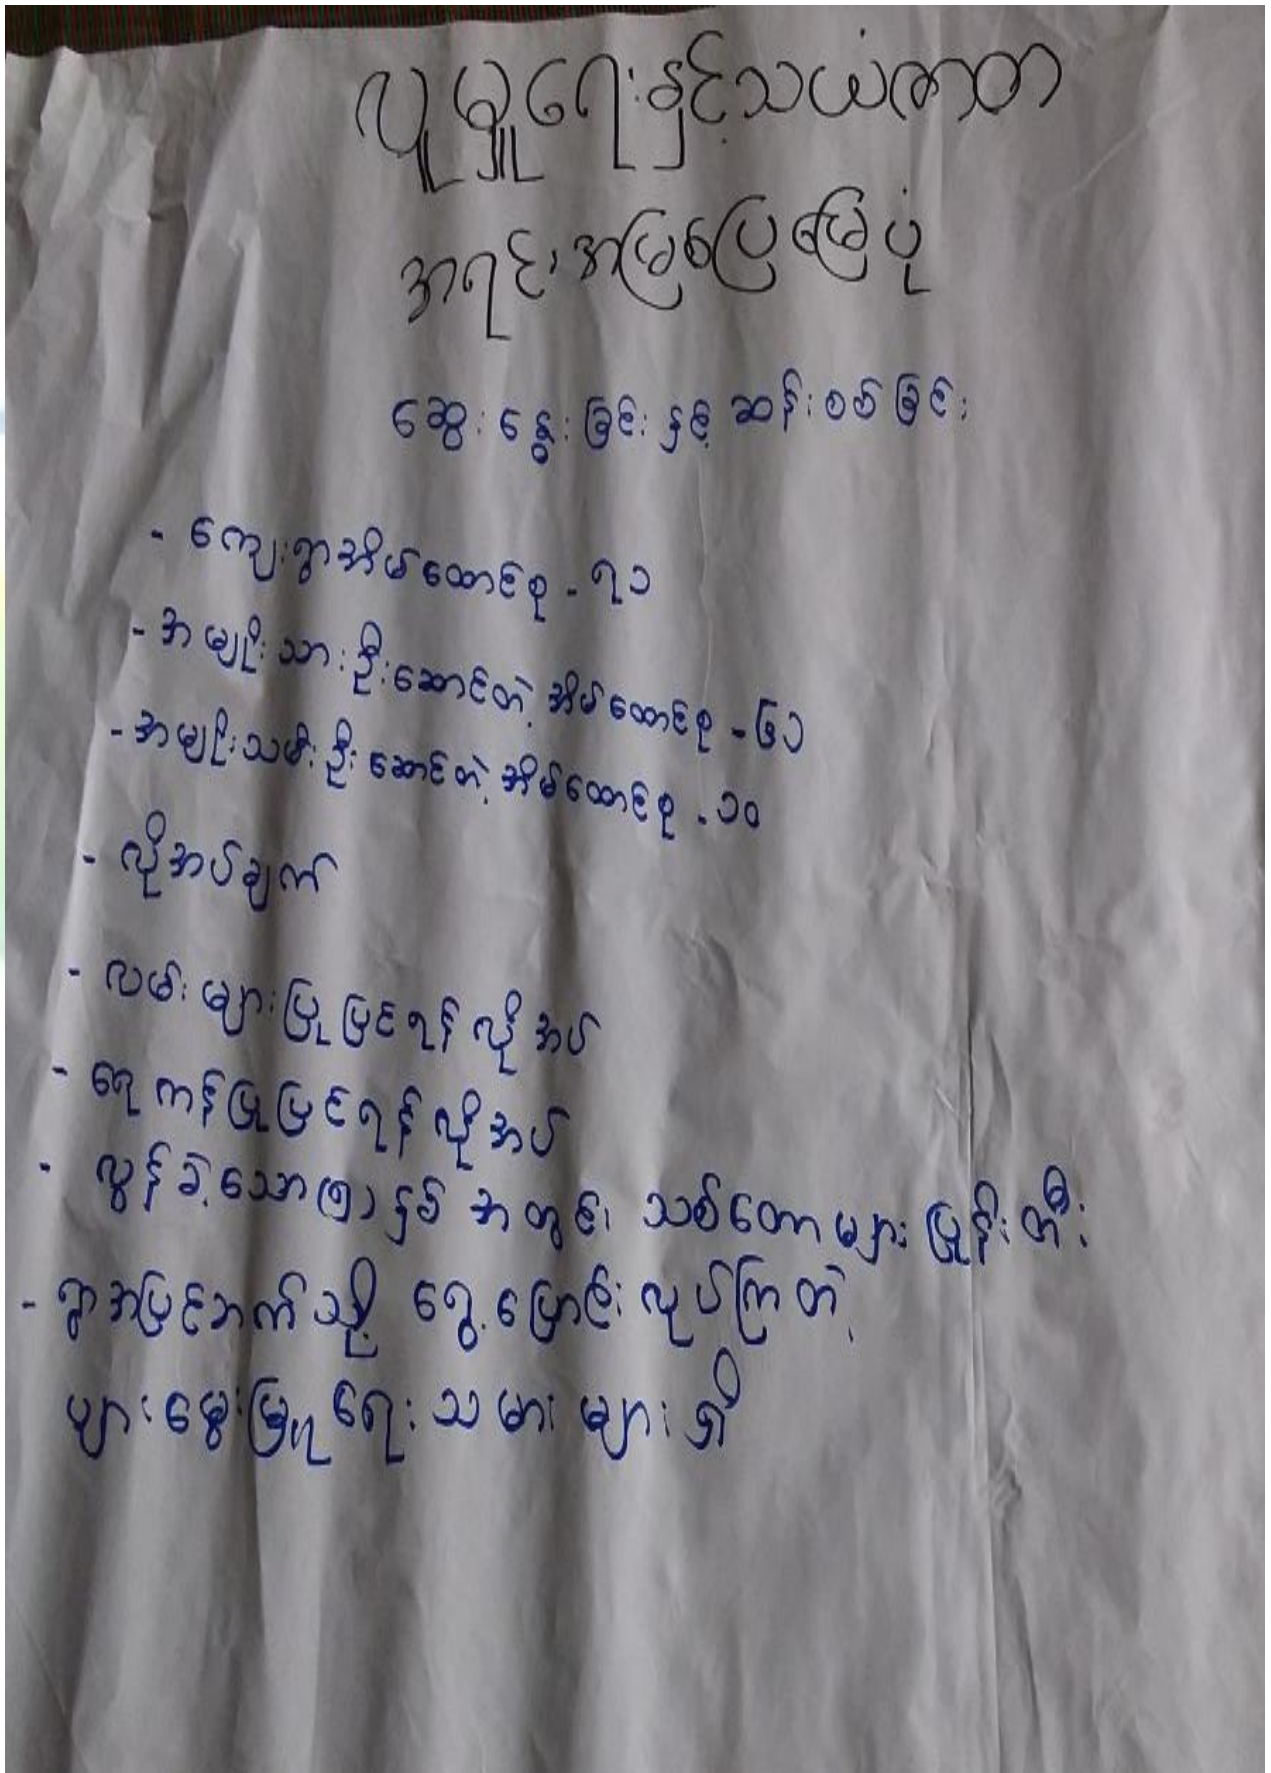 လူမှူရေးနှင့်သယံဇာတ
အရင်းအမြစ်ပြမြေပုံ
ဆွေးနွေးခြင်းနှင့် ဆန်းစစ်ခြင်း
- ကျေးရွာအိမ်ထောင်စု - ၇၁
- အမျိုးသားဦးဆောင်တဲ့ အိမ်ထောင်စု - ၆၁
- အမျိုးသမီးဦးဆောင်တဲ့ အိမ်ထောင်စု - ၁၀
- လိုအပ်ချက်
- လမ်းများပြုပြင်ရန် လိုအပ်
- ရေကန်ပြုပြင်ရန် လိုအပ်
- လွန်ခဲ့သော(၅)နှစ် အတွင်း သစ်တောများ ပြုန်းတီး
- ရွာအပြင်ဘက်သို့ ရွှေ့ပြောင်းလုပ်ကြတဲ့
ပျားမွေးမြူရေးသမားများရှိ